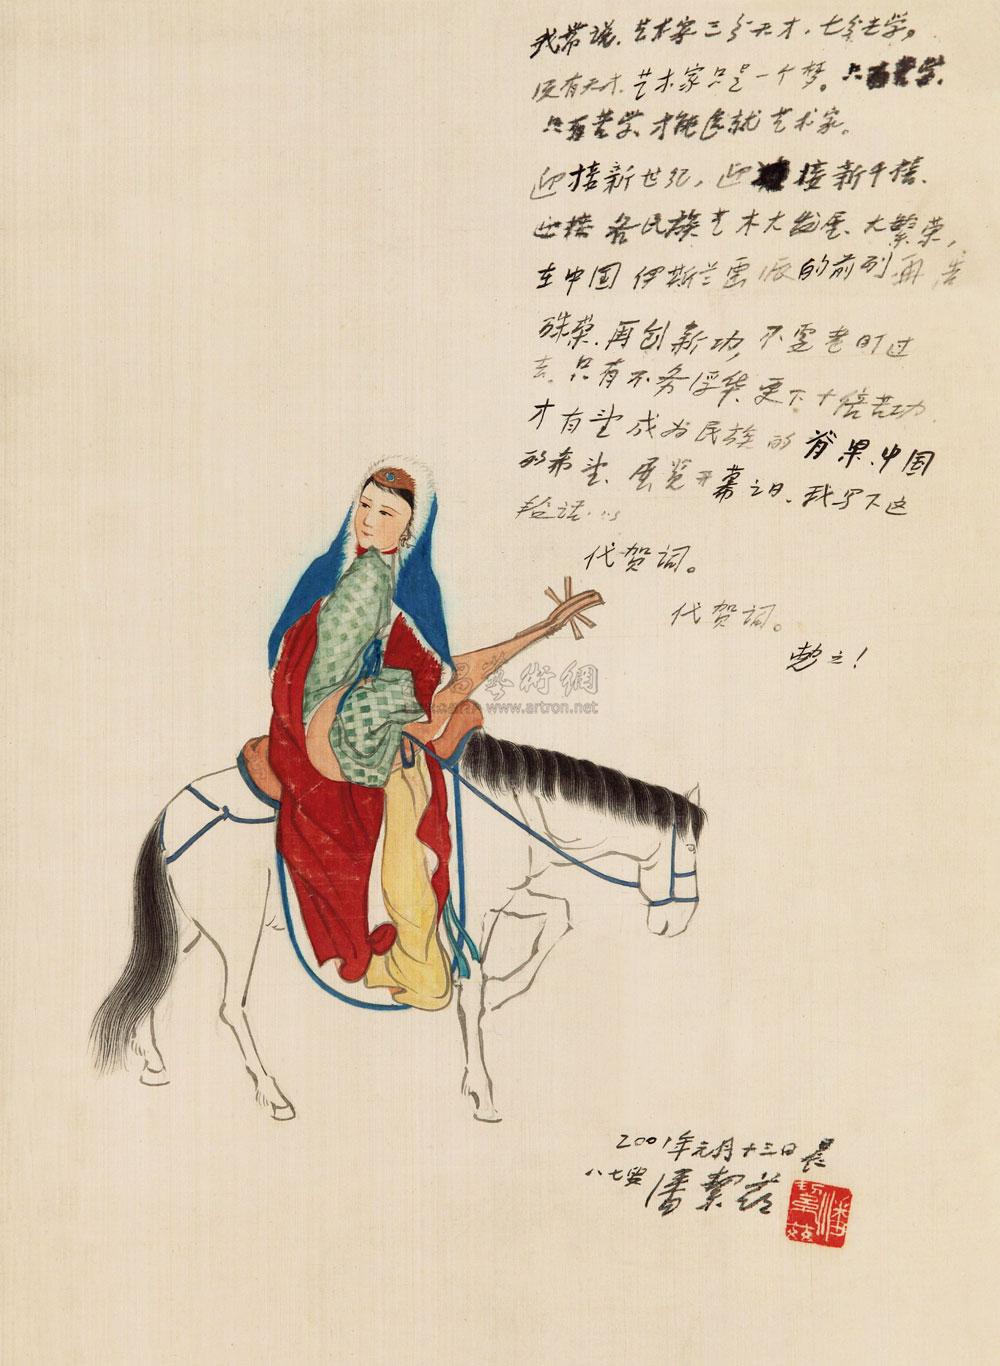 我常说、艺术家三分天才、七分苦学。
没有天才、艺术家只是一个梦。只有苦学、
只有苦学、才能造就艺术家。
迎接新世纪，迎接新千禧、
迎接各民族艺术大发展、大繁荣，
在中国伊斯兰画派的前列再
殊荣、再创新功，不要老时过
去、只有不务浮华、更下十倍苦功
才有望成为民族的脊梁、中国
的希望、展览开幕之日、我写下这
段话
代贺词。
代贺词。
勉之！
昌藝術網
www.artron.net
2001年元月十三日晨
八七叟 潘絜兹
潘絜茲